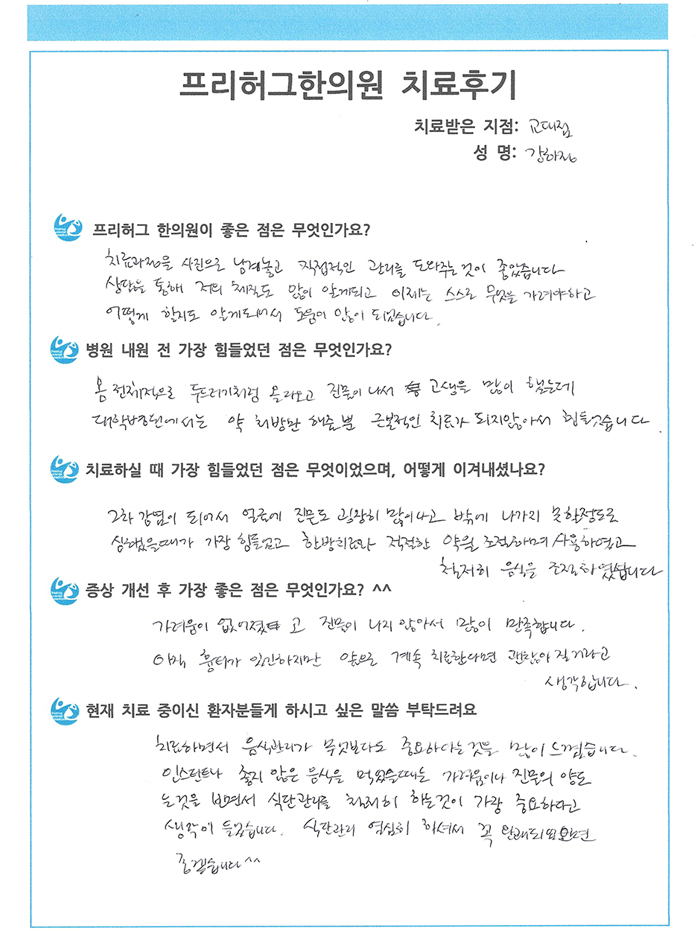 프리허그한의원 치료후기
치료받은 지점: 교대점
성 명: 강하장
프리허그 한의원이 좋은 점은 무엇인가요?
치료과정을 사진으로 남겨놓고 직접적인 관리를 도와주는것이 좋았습니다
상담을 통해 저의 체질도 많이 알게되고 이제는 스스로 무엇을 가려야하고
어떻게 할지도 알게되어서 도움이 많이 되었습니다.
병원 내원 전 가장 힘들었던 점은 무엇인가요?
몸 전체적으로 두드러기처럼 올라오고 진물이 나서 고생을 많이 했는데
대학병원에서는 약 처방만 해줄뿐 근본적인 치료가 되지않아서 힘들었습니다.
치료하실 때 가장 힘들었던 점은 무엇이었으며, 어떻게 이겨내셨나요?
2차 감염이 되어서 얼굴에 진물도 굉장히 많이나고 밖에 나가지 못할정도로
심해졌을때가 가장 힘들었고 한방치료와 적절한 약을 조절하며 사용하였고
철저히 음식을 조절하였습니다
증상 개선 후 가장 좋은 점은 무엇인가요? ^^
가려움이 없어졌고 진물이 나지 않아서 많이 만족합니다.
아직 흉터가 있긴하지만 앞으로 계속 치료한다면 괜찮아 질거라고
생각합니다.
현재 치료 중이신 환자분들게 하시고 싶은 말씀 부탁드려요
치료하면서 음식관리가 무엇보다도 중요하다는것을 많이 느꼈습니다.
인스턴트나 좋지 않은 음식을 먹었을때는 가려움이나 진물의 양도
는것을 보면서 식단관리를 철저히 하는것이 가장 중요하다고
생각이 들었습니다. 식단관리 열심히 하셔서 꼭 완쾌되셨으면
좋겠습니다^^